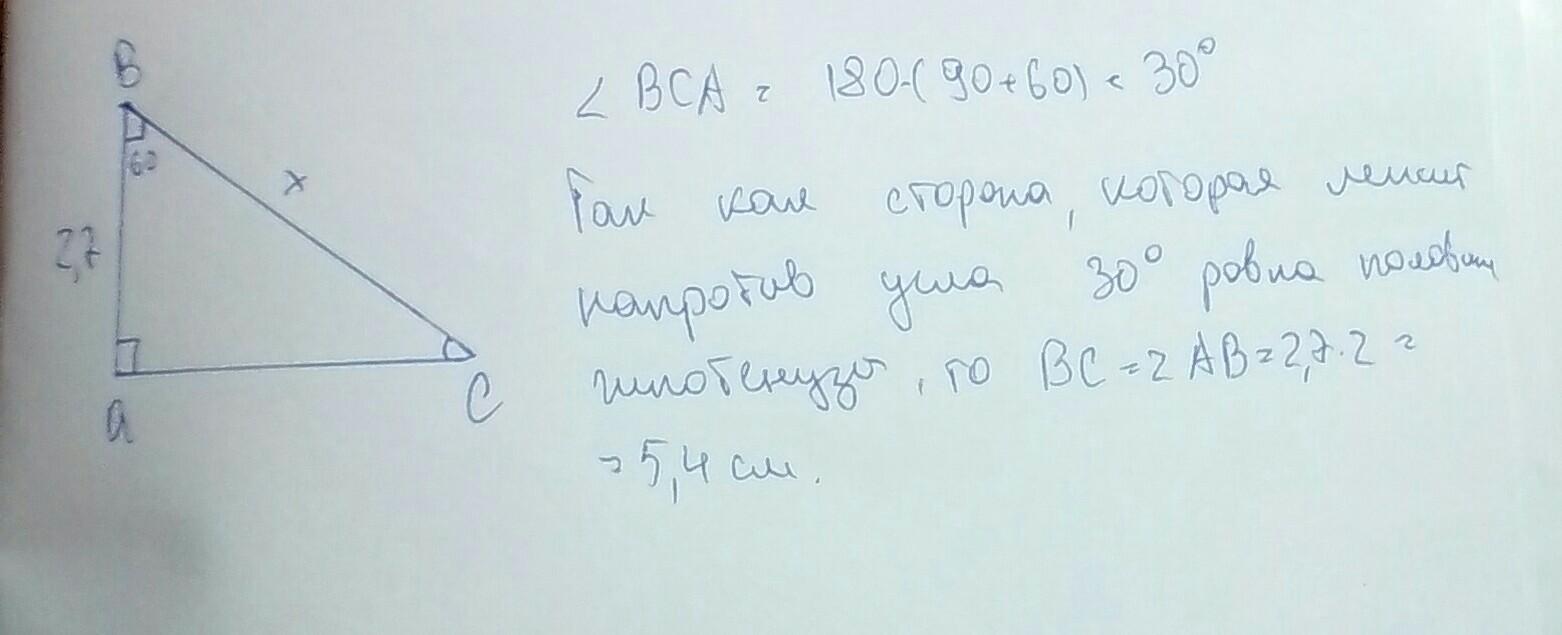 B
60
x
2,7
a
C
∠ BCA = 180-(90+60) = 30°
Так как сторона, которая лежит
напротив угла 30° ровна половин
гипотенузы, то BC = 2 AB = 2,7·2 =
= 5,4 см.